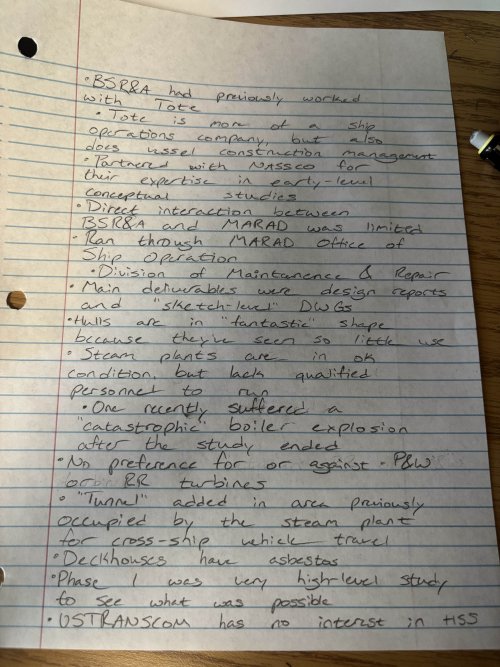 • BSR&A had previously worked
with Tote
• Tote is more of a ship
operations company, but also
does vessel construction management
• Partnered with NASSCO for
their expertise in early-level
conceptual studies
• Direct interaction between
BSR&A and MARAD was limited
• Ran through MARAD Office of
Ship Operation
• Division of Maintanence & Repair
• Main deliverables were design reports
and "sketch-level" DWGs
• Hulls are in "fantastic" shape
because they've seen so little use
• Steam plants are in ok
condition, but lack qualified
personnel to run
• One recently suffered a
"catastrophic" boiler explosion
after the study ended
• No preference for or against P&W
or RR turbines
• "Tunnel" added in area previously
occupied by the steam plant
for cross-ship vehicle travel
• Deckhouses have asbestos
• Phase 1 was very high-level study
to see what was possible
• USTRANSCOM has no interest in HSS